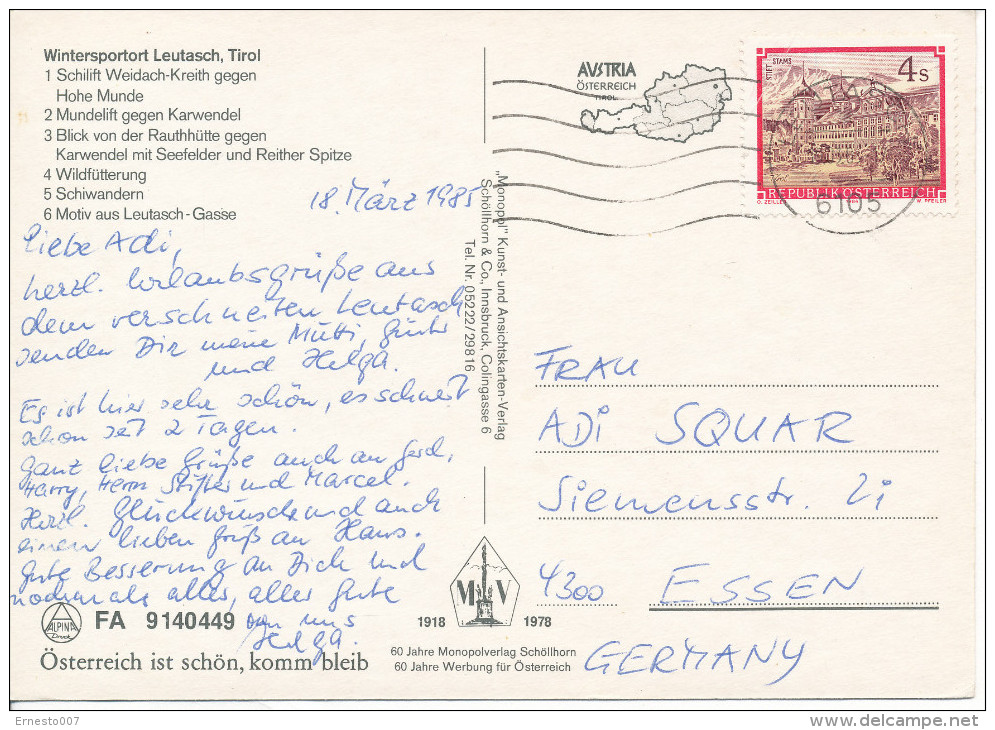 Wintersportort Leutasch, Tirol
1 Schilift Weidach-Kreith gegen
Hohe Munde
2 Mundelift gegen Karwendel
3 Blick von der Rauthhütte gegen
Karwendel mit Seefelder und Reither Spitze
4 Wildfütterung
5 Schiwandern
6 Motiv aus Leutasch-Gasse
18. März 1985
Liebe Adi,
herzl. Urlaubsgrüße aus
dem verschneiten Leutasch
senden Dir meine Mutti,
und Helga.
Es ist hier sehr schön, es schneit
schon seit 2 Tagen.
Ganz liebe Grüße auch an Gerd,
Harry, Herrn und Marcel.
Herzl. Glückwünsche und auch
einen lieben Gruß an Hans.
Gute Besserung an Dich und
nochmals alles, alles Gute
von uns
Helga.
ALPINA
Druck
FA 9140449
Österreich ist schön, komm bleib
"Monopol" Kunst- und Ansichtskarten-Verlag
Schöllhorn & Co., Innsbruck, Colingasse 6
Tel. Nr. 05222/29816
AUSTRIA
ÖSTERREICH
TIROL
STIFT STAMS
4 S
REPUBLIK ÖSTERREICH
O. ZEILLER
W. PFEILER
6105
FRAU
ADI SQUAR
Siemensstr. 21
4300 ESSEN
GERMANY
M V
1918 1978
60 Jahre Monopolverlag Schöllhorn
60 Jahre Werbung für Österreich
Ernesto007
delcampe.net